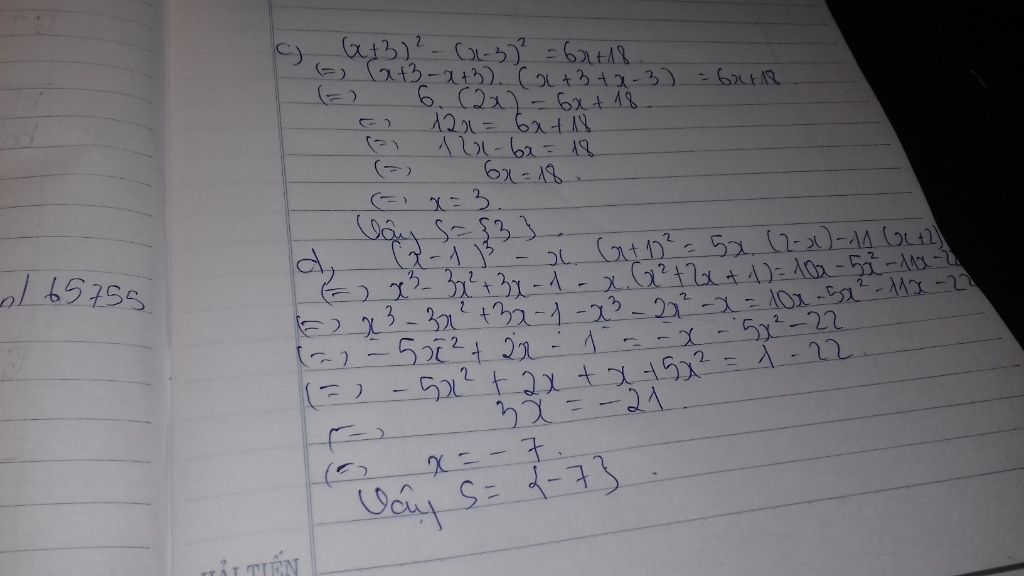 c) (x+3)² - (x-3)² = 6x+18.
(=) (x+3-x+3). (x+3+x-3) = 6x+18
(=) 6. (2x) = 6x+18.
(=) 12x = 6x+18
(=) 12x-6x = 18
(=) 6x=18.
(=) x = 3.
Vậy S={3}.
d, (x-1)³ - x. (x+1)² = 5x. (2-x)-11(x+2)
(=) x³-3x²+3x-1-x.(x²+2x+1)=10x-5x²-11x-22
(=) x³-3x²+3x-1-x³-2x²-x=10x-5x²-11x-22
(=) -5x²+2x-1 = -x-5x²-22
(=) -5x²+2x+x+5x² = 1-22
(=) 3x = -21.
(=) x = -7.
Vậy S= {-7}.
65755
HẢI TIẾN